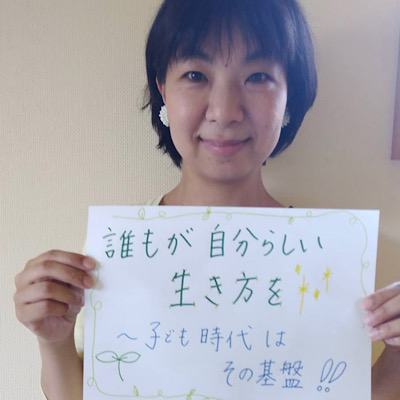 誰もが自分らしい
生き方を
～子ども時代は
その基盤!!